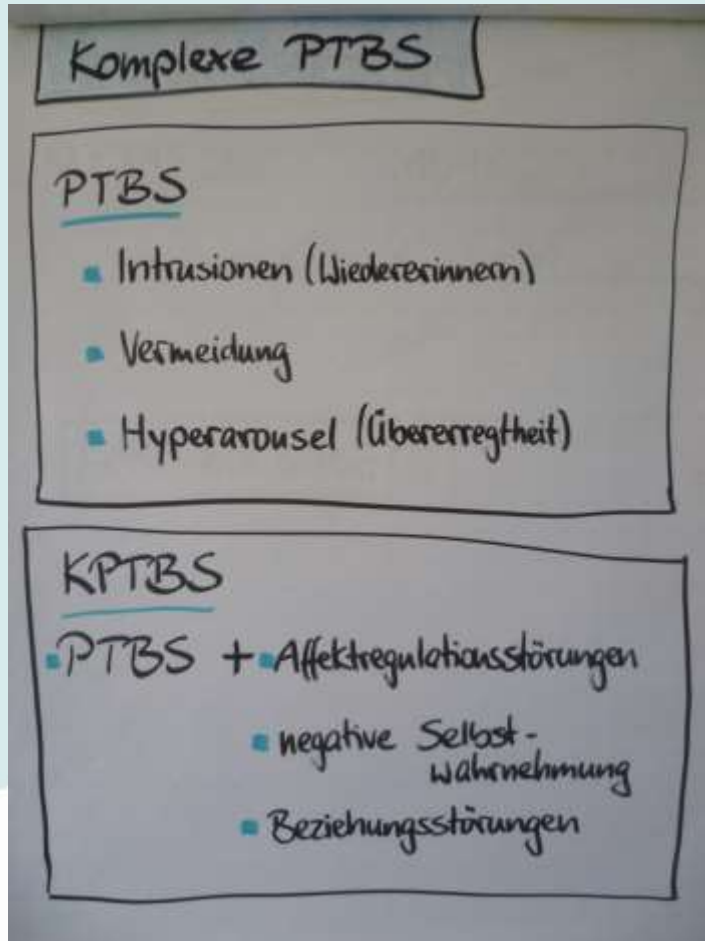 Komplexe PTBS
PTBS
Intrusionen (Wiedererinnern)
Vermeidung
Hyperarousel (Übererregtheit)
KPTBS
PTBS + Affektregulationsstörungen
negative Selbst-
wahrnehmung
Beziehungsstörungen